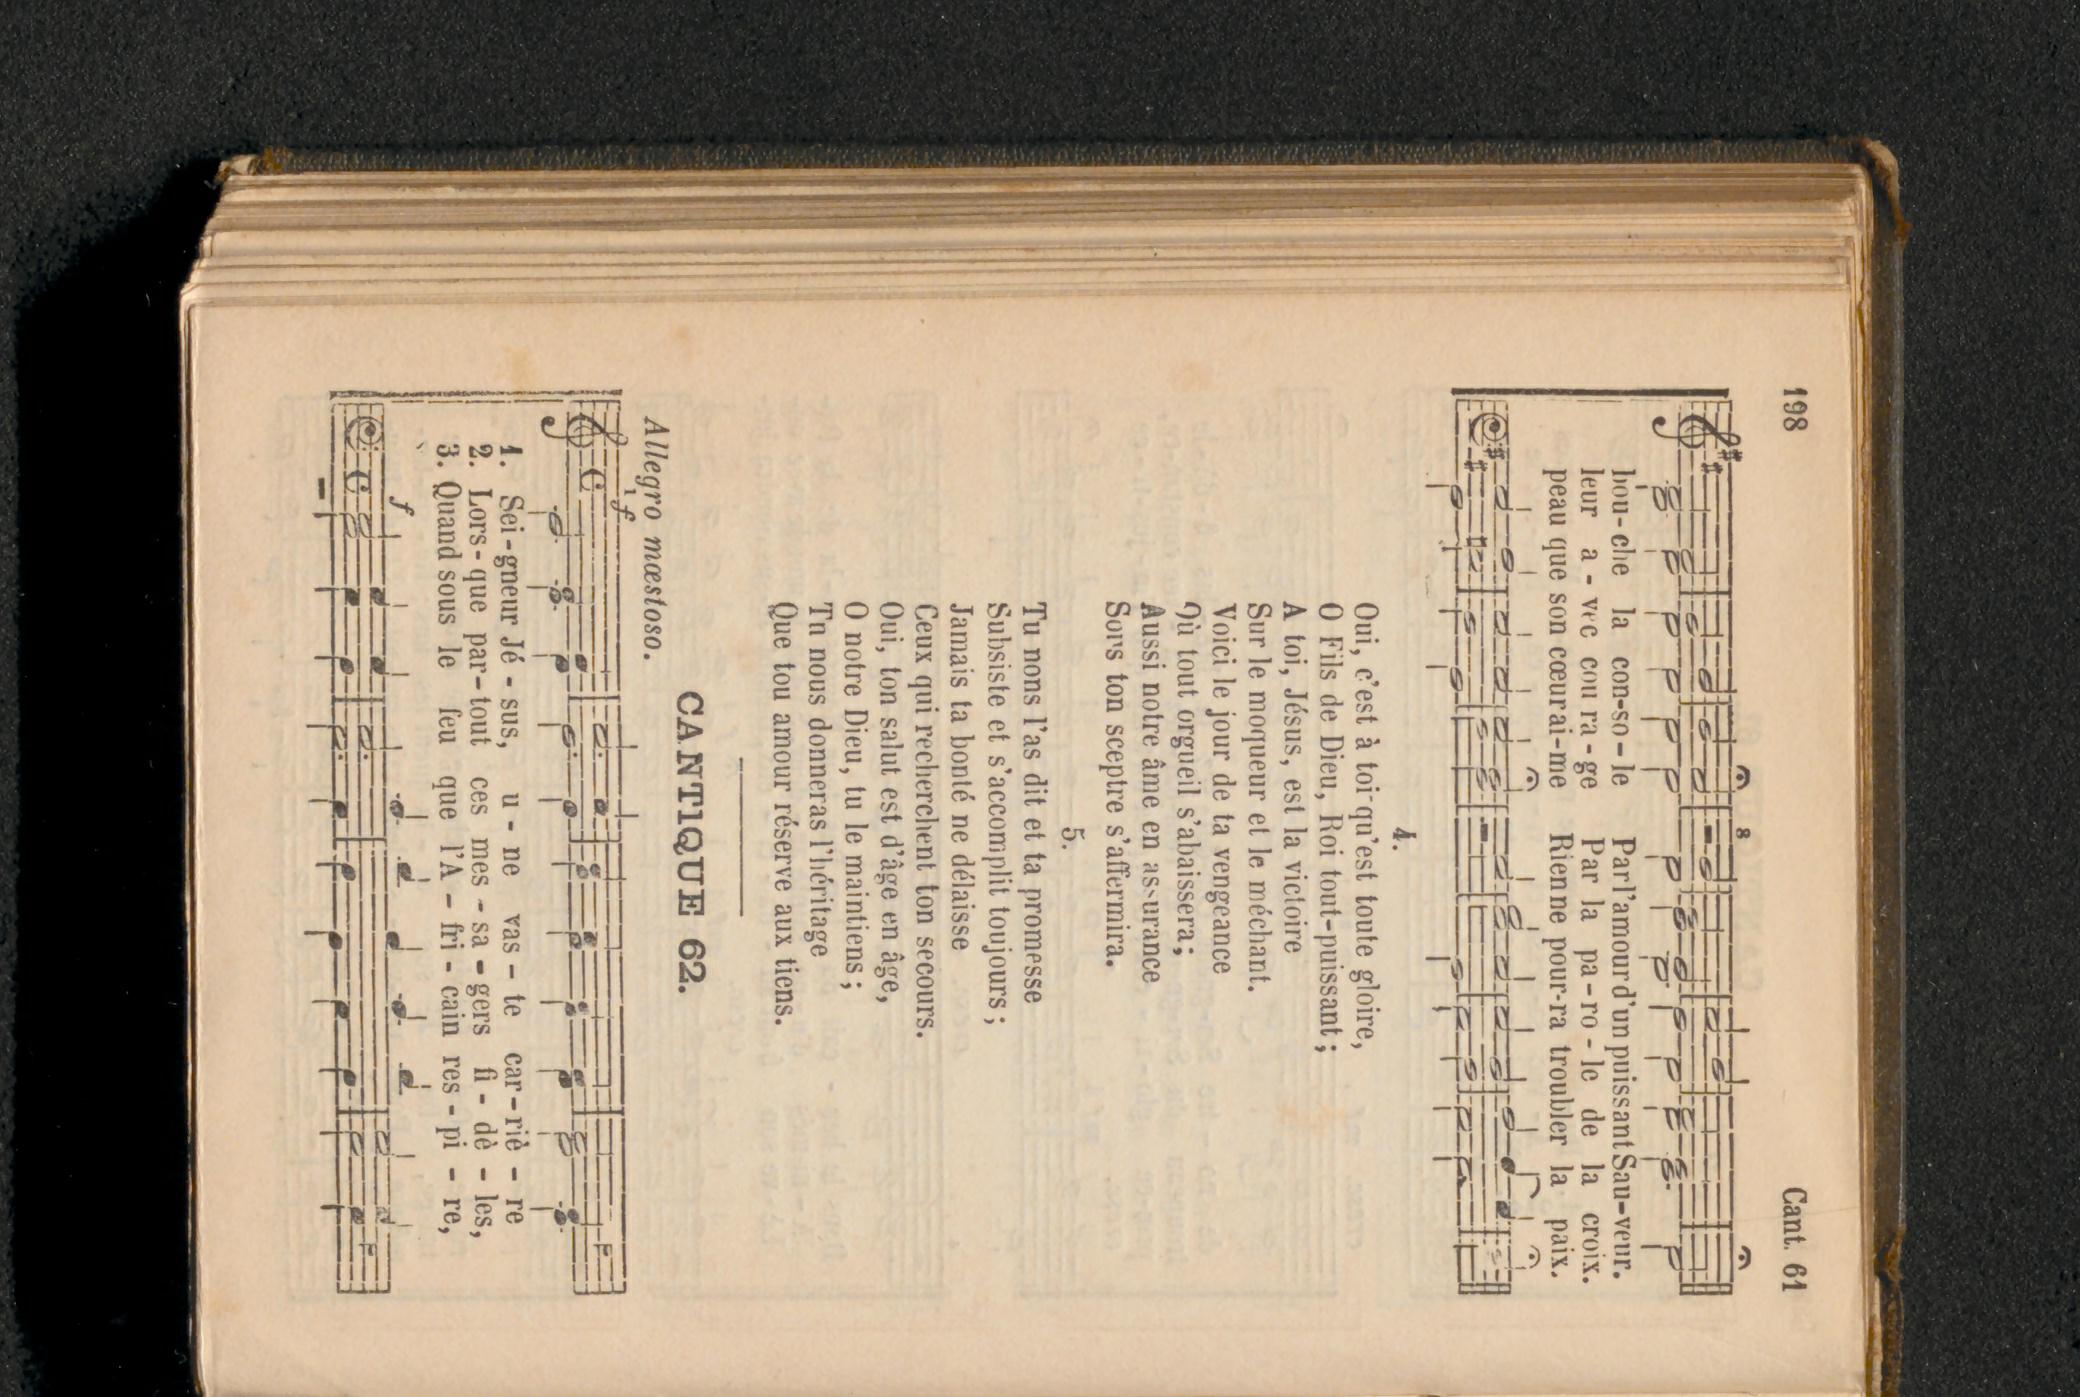 198
Cant. 61
8
bou-che la con-so-le Par l'amour d'un puissant Sau-veur.
leur a-vec cou ra-ge Par la pa-ro-le de la croix.
peau que son cœur ai-me Rien ne pour-ra troubler la paix.
4.
Oui, c'est à toi qu'est toute gloire,
O Fils de Dieu, Roi tout-puissant;
A toi, Jésus, est la victoire
Sur le moqueur et le méchant.
Voici le jour de ta vengeance
Où tout orgueil s'abaissera;
Aussi notre âme en assurance
Sous ton sceptre s'affermira.
5.
Tu nons l'as dit et ta promesse
Subsiste et s'accomplit toujours;
Jamais ta bonté ne délaisse
Ceux qui recherchent ton secours.
Oui, ton salut est d'âge en âge,
O notre Dieu, tu le maintiens;
Tu nous donneras l'héritage
Que tou amour réserve aux tiens.
CANTIQUE 62.
Allegro mœstoso.
f
1. Sei-gneur Jé-sus, u-ne vas-te car-riè-re
2. Lors-que par-tout ces mes-sa-gers fi-dè-les,
3. Quand sous le feu que l'A-fri-cain res-pi-re,
f